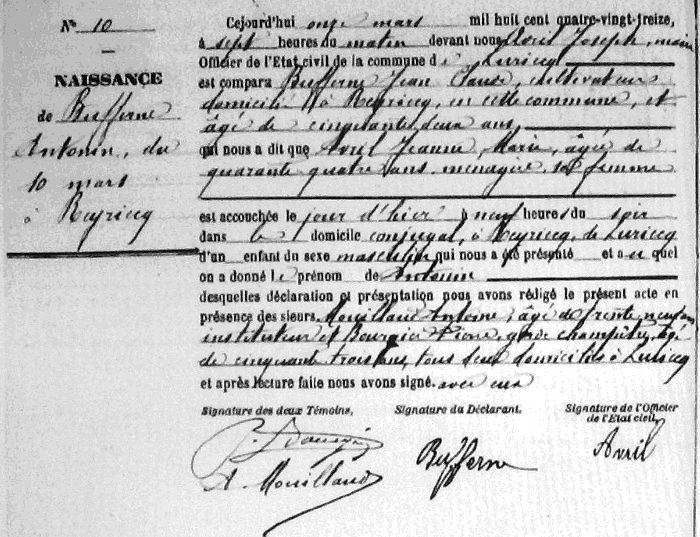 N° 10
NAISSANCE
de Bufferne
Antonin, du
10 mars
à Reyricq
Cejourd'hui onze mars mil huit cent quatre-vingt-treize,
à sept heures du matin devant nous Joseph, maire
Officier de l'Etat civil de la commune de Luricq
est comparu Bufferne Jean cultivateur
domicilié à Reyricq, en cette commune, et
âgé de cinquante deux ans,
qui nous a dit que Avril Jeanne, Marie, âgée de
quarante quatre ans ménagère, sa femme
est accouchée le jour d'hier à neuf heures du soir
dans le domicile conjugal, à Reyricq, de Luricq
d'un enfant du sexe masculin qui nous a été présenté et auquel
on a donné le prénom de Antonin
desquelles déclaration et présentation nous avons rédigé le présent acte en
présence des sieurs Mouillaud Antoine, âgé de trente neuf ans
instituteur et Pierre, garde champêtre, âgé
de cinquante trois ans, tous deux domiciliés à Luricq
et après lecture faite nous avons signé avec eux
Signature des deux Témoins, Signature du Déclarant. Signature de l'Officier
de l'Etat civil,
Bufferne Avril
A. Mouillaud